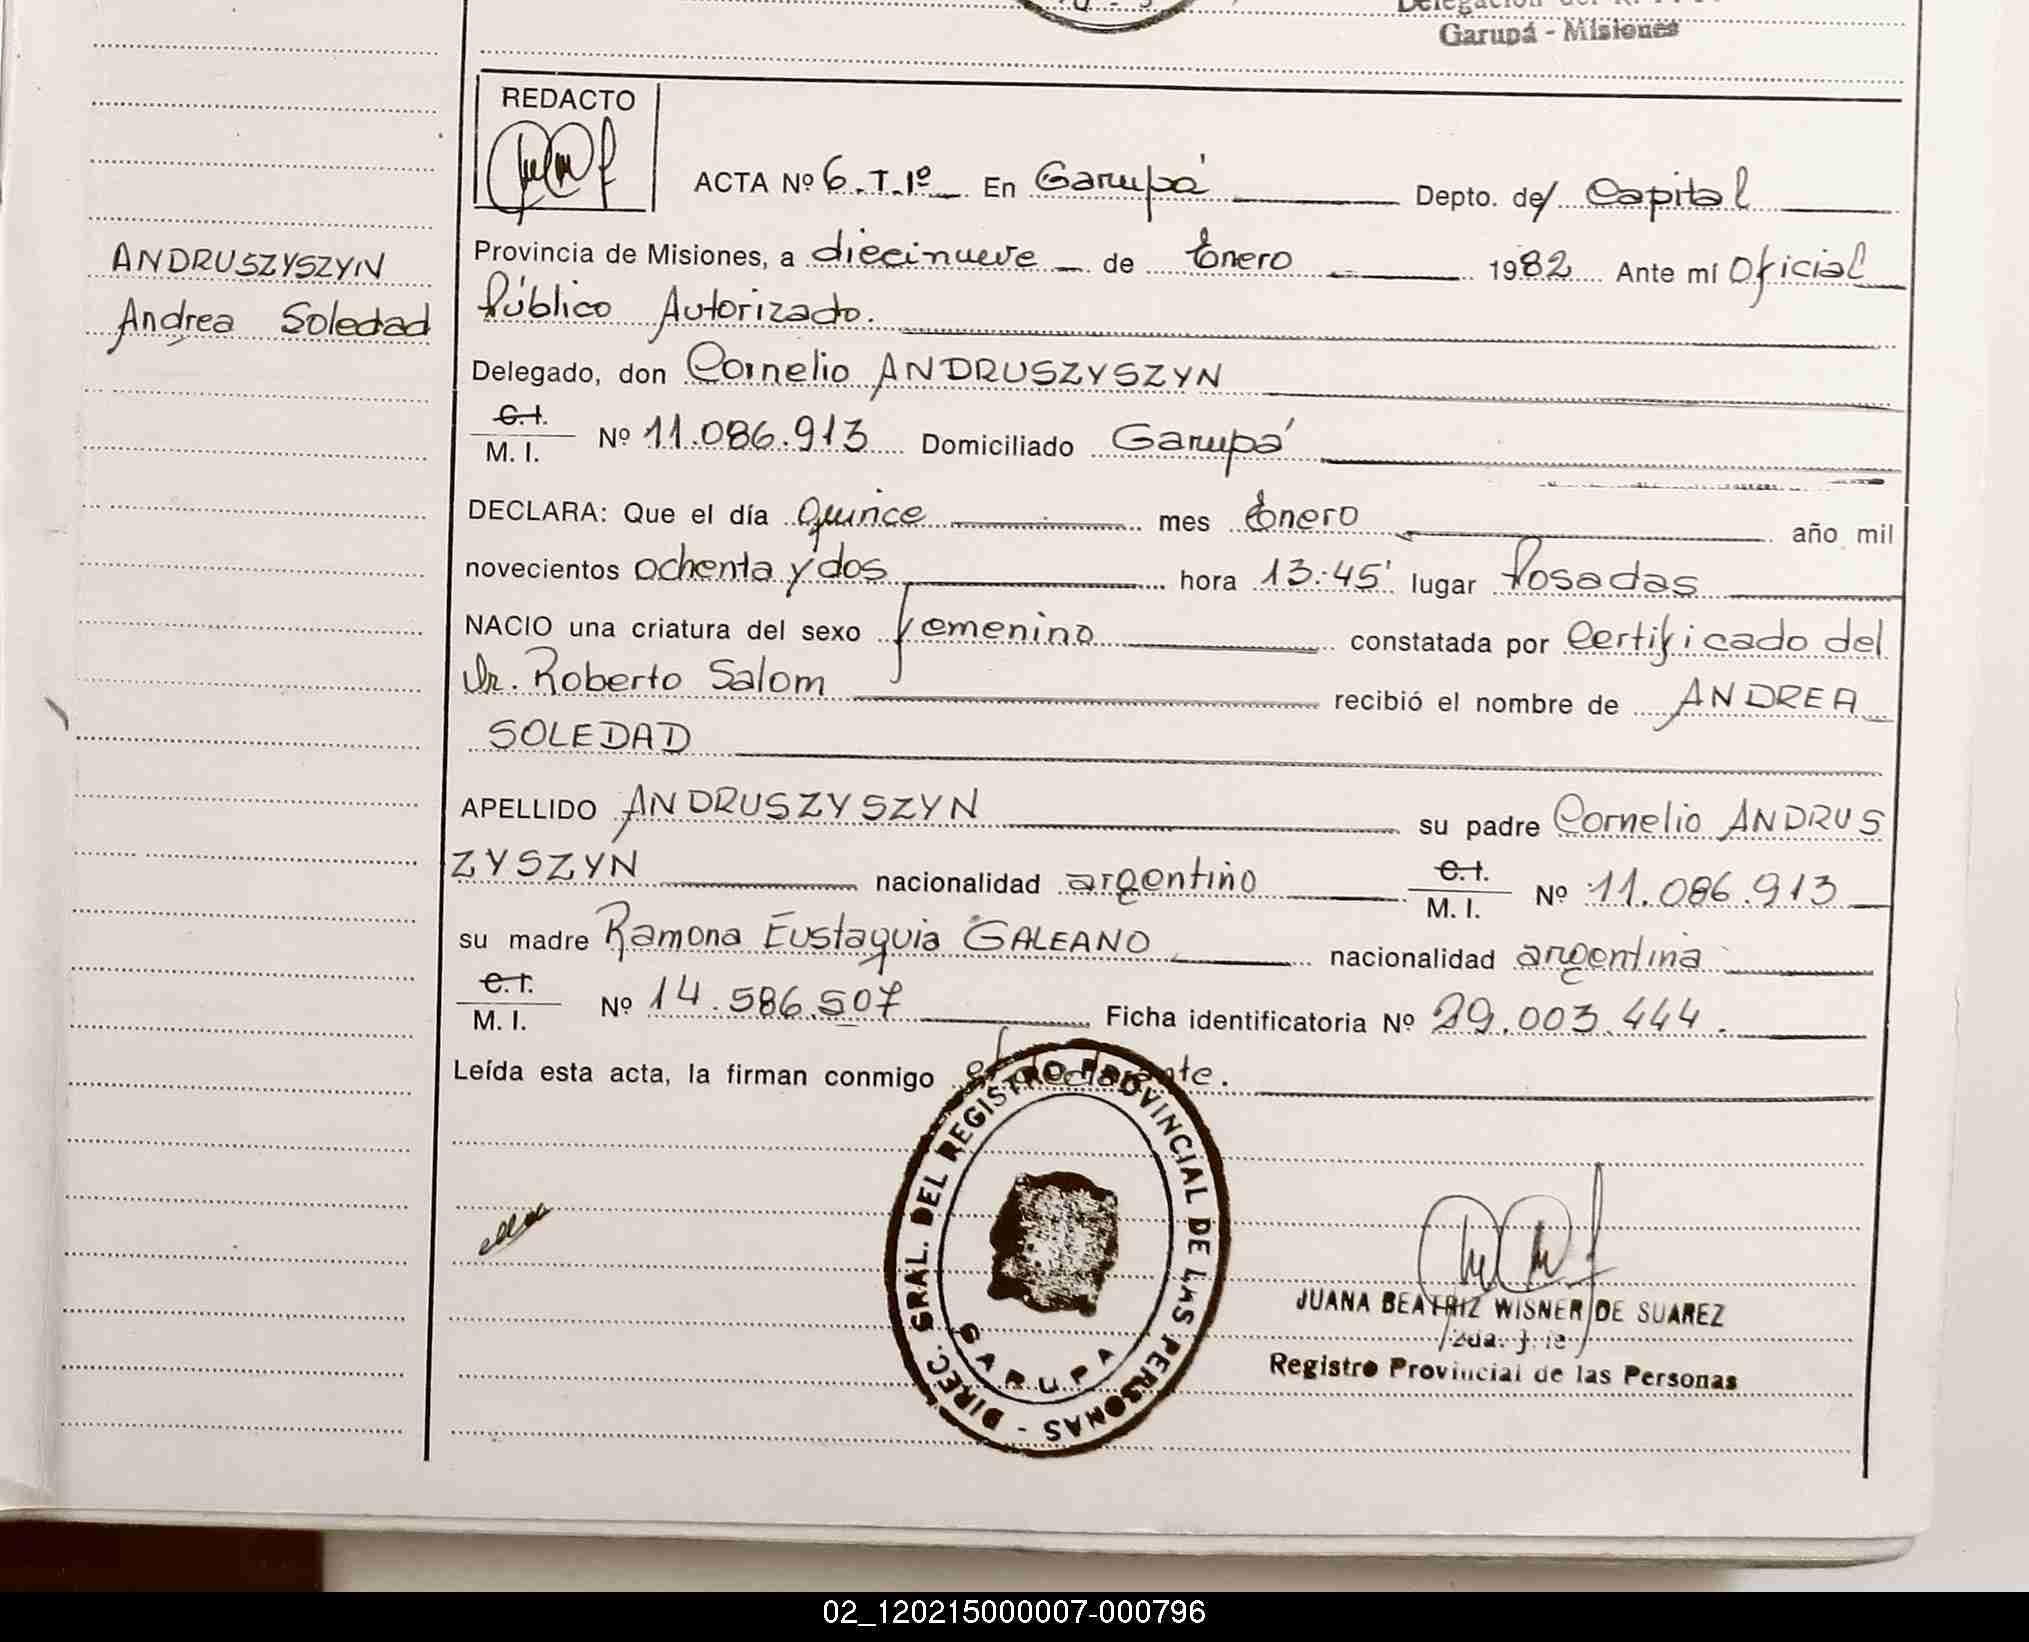 Delegación del R.
Garupá - Misiones
REDACTO
ACTA Nº 6.T.1º En Garupá Depto. de Capital
Provincia de Misiones, a diecinueve de Enero 1982 Ante mí Oficial
Público Autorizado.
ANDRUSZYSZYN
Andrea Soledad
Delegado, don Cornelio ANDRUSZYSZYN
C.I.
M. I. Nº 11.086.913 Domiciliado Garupá
DECLARA: Que el día quince mes Enero año mil
novecientos ochenta y dos hora 13:45' lugar Posadas
NACIO una criatura del sexo femenino constatada por Certificado del
Dr. Roberto Salom recibió el nombre de ANDREA
SOLEDAD
APELLIDO ANDRUSZYSZYN su padre Cornelio ANDRUS
ZYSZYN nacionalidad argentino C.I. M. I. Nº 11.086.913
su madre Ramona Eustaquia GALEANO nacionalidad argentina
C.I.
M. I. Nº 14.586.507 Ficha identificatoria Nº 29.003.444.
Leída esta acta, la firman conmigo el declarante.
DIREC. GRAL. DEL REGISTRO PROVINCIAL DE LAS PERSONAS -
GARUPA
JUANA BEATRIZ WISNER DE SUAREZ
2da. Jefe
Registro Provincial de las Personas
02_120215000007-000796